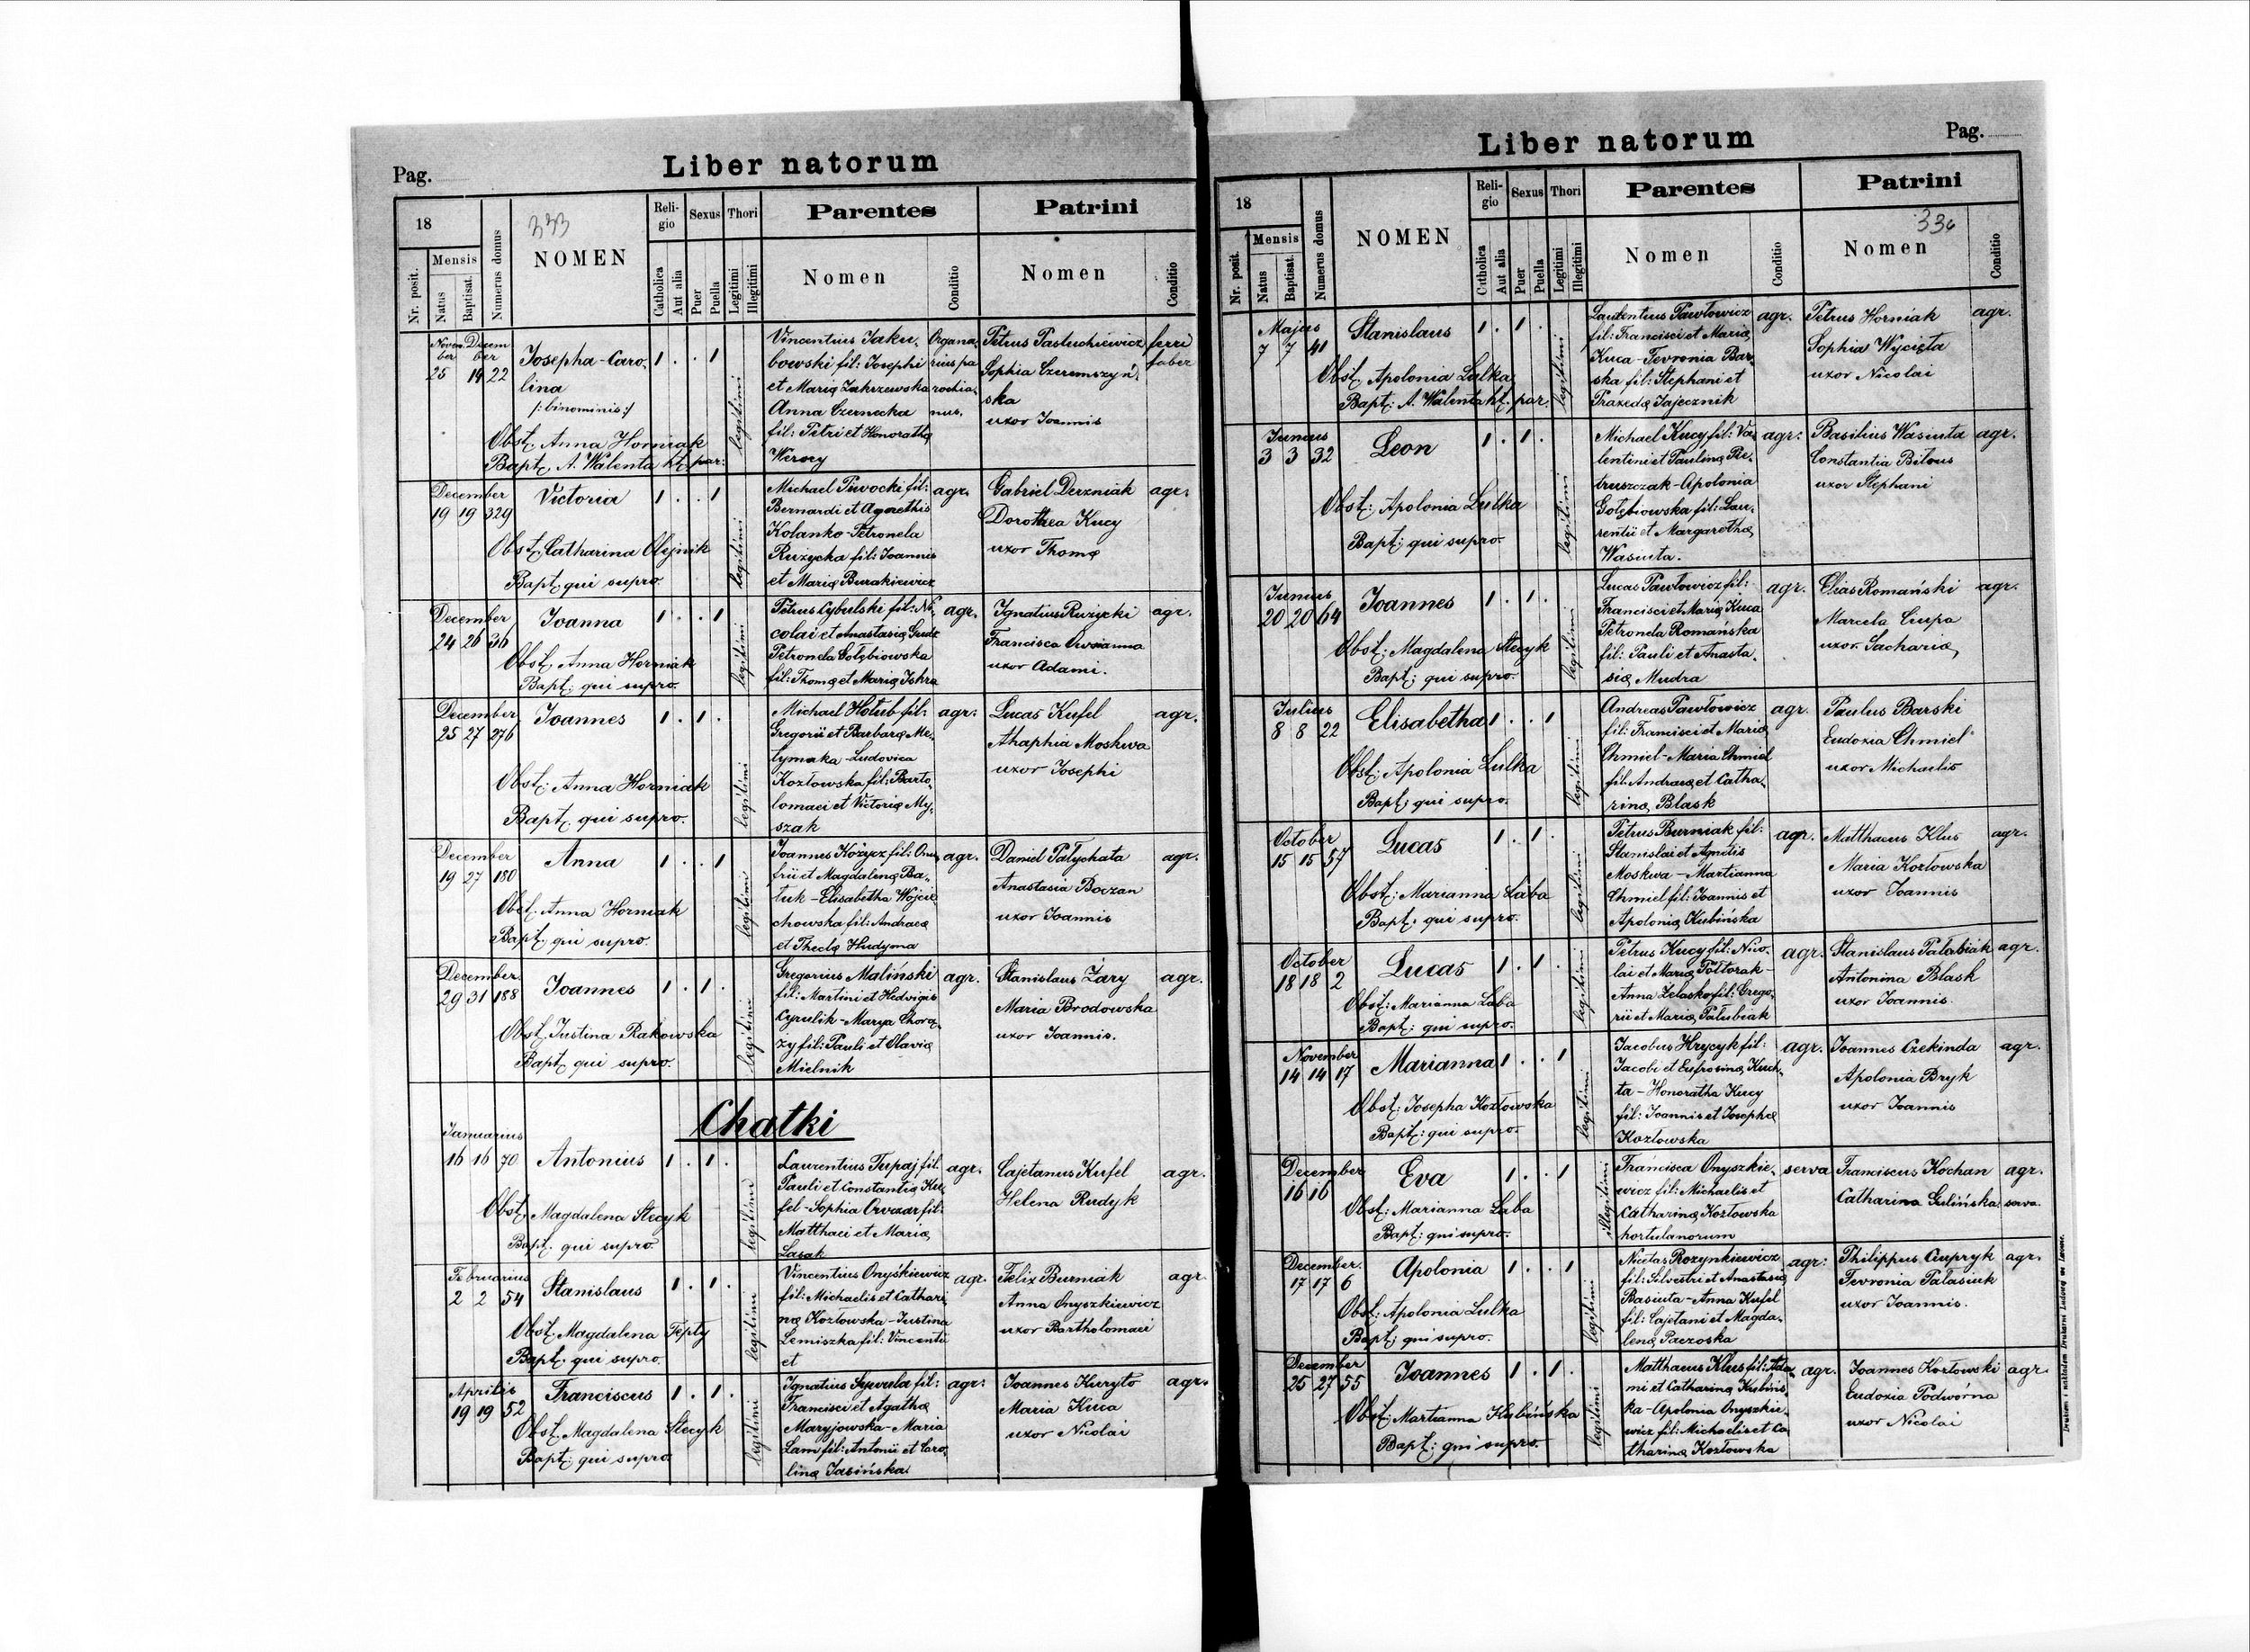 Liber natorum
Pag.
18
333
NOMEN
Religio
Sexus
Thori
Parentes
Patrini
Nr. posit.
Mensis
Natus
Baptisat.
Numerus domus
Catholica
Aut alia
Puer
Puella
Legitimi
Illegitimi
Nomen
Conditio
Nomen
Conditio
Novem Decem
ber ber
25 14 22
Josepha-Caro,
lina
/: binominis :/
1 . . 1
legitimi
Obst. Anna Horniak
Bapt. A. Walenta par:
Vincentius Jaku,
bowski fil: Josephi
et Mariæ Zakrzewska
Anna Czernecka
fil: Petri et Honorathæ
Organa,
rius pa
rochia,
nus.
Petrus Pastuchiewicz
Sophia
ska
uxor Joannis
ferri
faber
December
19 19 329
Victoria
1 . . 1
legitimi
Obst. Catharina Olejnik
Bapt. qui supro.
Michael Piwocki fil:
Bernardi et Agnethis
Kolanko-Petronela
Ruzycka fil: Joannis
et Mariæ Burakiewicz
agr.
Gabriel Derzniak
Dorothea Kucy
uxor Thomæ
agr.
December
24 26 36
Joanna
1 . . 1
legitimi
Obst. Anna Horniak
Bapt: qui supro.
Petrus Cybulski fil: Ni,
colai et Anastasiæ
Petronela Gołębiowska
fil: Thomæ et Mariæ
agr.
Ignatius Ruzycki
Francisca Owsianna
uxor Adami.
agr.
December
25 27 276
Joannes
1 . 1 .
legitimi
Obst: Anna Horniak
Bapt. qui supro.
Michael Hołub fil:
Gregorii et Barbaræ Me,
lymaka-Ludovica
Kozłowska fil: Barto,
lomaei et Victoriæ My,
szak
agr:
Lucas Kufel
Ahaphia Moskwa
uxor Josephi
agr.
December
19 27 180
Anna
1 . . 1
legitimi
Obst. Anna Horniak
Bapt. qui supro.
Joannes fil: Onu,
frii et Magdalenæ Ba,
tuk-Elisabetha Wojcie,
chowska fil: Andreae
et Theclæ Hudyma
agr.
Daniel Patychata
Anastasia Boczan
uxor Joannis
agr.
December.
29 31 188
Joannes
1 . 1 .
legitimi
Obst. Justina Rakowska
Bapt. qui supro.
Gregorius Maliński
fil: Martini et Hedvigis
Cyrulik-Marya Chorą,
zy fil: Pauli et
Mielnik
agr.
Stanislaus Żary
Maria Brodowska
uxor Joannis.
agr.
Chatki
Januarius
16 16 70
Antonius
1 . 1 .
legitimi
Obst. Magdalena Stecyk
Bapt. qui supro.
Laurentius Tupaj fil.
Pauli et Constantiæ Ku,
fel-Sophia Owczar fil:
Matthaei et Mariæ,
Lasak
agr.
Cajetanus Kufel
Helena Rudyk
agr.
Februarius
2 2 54
Stanislaus
1 . 1 .
legitimi
Obst. Magdalena Tepty
Bapt. qui supro.
Vincentius Onyśkiewicz
fil: Michaelis et Cathari,
næ Kozłowska-Justina
Lemiszka fil: Vincentii
et
agr.
Felix Burniak
Anna Onyszkiewicz
uxor Bartholomaei
agr.
Aprilis
19 19 52
Franciscus
1 . 1 .
legitimi
Obst. Magdalena Stecyk
Bapt: qui supro.
Ignatius fil:
Francisci et Agathæ
Maryjowska-Maria
Lam fil: Antonii et Caro,
linæ Jasińska
agr:
Joannes Kuryło
Maria Kuca
uxor Nicolai
agr.
Liber natorum
Pag.
18
NOMEN
Religio
Sexus
Thori
Parentes
Patrini
336
Nr. posit.
Mensis
Natus
Baptisat.
Numerus domus
Catholica
Aut alia
Puer
Puella
Legitimi
Illegitimi
Nomen
Conditio
Nomen
Conditio
Majus
7 7 41
Stanislaus
1 . 1 .
legitimi
Obst. Apolonia Lulka
Bapt: A. Walenta par.
Laurentius Pawłowicz
fil: Francisci et Mariæ
Kuca-Tevronia Bar,
ska fil: Stephani et
Praxedæ Jajecznik
agr.
Petrus Horniak
Sophia Wycięta
uxor Nicolai
agr.
Junius
3 3 32
Leon
1 . 1 .
legitimi
Obst: Apolonia Lulka
Bapt: qui supro.
Michael Kucy fil: Va,
lentini et Paulinæ Pie,
truszczak-Apolonia
Gołębiowska fil: Lau,
rentii et Margarethæ
Wasiuta.
agr:
Basilius Wasiuta
Constantia Bilous
uxor Stephani
agr.
Junius
20 20 64
Joannes
1 . 1 .
legitimi
Obst: Magdalena Stecyk
Bapt: qui supro.
Lucas Pawłowicz fil:
Francisci et Mariæ Kuca
Petronela Romańska
fil: Pauli et Anasta,
siæ Mudra
agr.
Elias Romański
Marcela Ciupa
uxor Sachariæ,
agr.
Julius
8 8 22
Elisabetha
1 . . 1
legitimi
Obst: Apolonia Lulka
Bapt: qui supro.
Andreas Pawłowicz
fil: Francisci et Mariæ
Chmiel-Maria Chmiel
fil: Andreæ et Catha,
rinæ Blask
agr.
Paulus Barski
Eudoxia Chmiel
uxor Michaelis
October
15 15 57
Lucas
1 . 1 .
legitimi
Obst: Marianna Łaba
Bapt: qui supro.
Petrus Burniak fil:
Stanislai et Agnetis
Moskwa-Martianna
Chmiel fil: Joannis et
Apoloniæ Kubińska
agr.
Matthaeus Klus
Maria Kozłowska
uxor Joannis
agr.
October
18 18 2
Lucas
1 . 1 .
legitimi
Obst: Marianna Łaba
Bapt: qui supro.
Petrus Kucy fil: Nico,
lai et Mariæ Półtorak-
Anna Zelasko fil: Grego,
rii et Mariæ Palubiak
agr.
Stanislaus Palubiak
Antonina Blask
uxor Joannis.
agr.
November
14 14 17
Marianna
1 . . 1
legitimi
Obst: Josepha Kozłowska
Bapt: qui supro.
Jacobus Hrycyk fil:
Jacobi et Eufrosinæ Kuch,
ta-Honoratha Kucy
fil: Joannis et Josephæ
Kozłowska
agr.
Joannes Czekinda
Apolonia Bryk
uxor Joannis
agr.
December
16 16
Eva
1 . . 1
illegitimi
Obst: Marianna Łaba
Bapt: qui supro.
Francisca Onyszkie,
wicz fil: Michaelis et
Catharinæ Kozłowska
hortulanorum
serva
Franciscus Kochan
Catharina Gulińska
agr.
serva
December.
17 17 6
Apolonia
1 . . 1
legitimi
Obst: Apolonia Lulka
Bapt: qui supro.
Nicetas Rozynkiewicz
fil: Silvestri et Anastasiæ
Basiuta-Anna Kufel
fil: Cajetani et Magda,
lenæ Paczoska
agr:
Philippus Ciupryk
Tevronia Palasiuk
uxor Joannis.
agr.
December
25 27 55
Joannes
1 . 1 .
legitimi
Obst: Martianna Kubińska
Bapt: qui supro.
Matthaeus Klus fil: Ada,
mi et Catharinæ Kubińs,
ka-Apolonia Onyszkie,
wicz fil: Michaelis et Ca
tharinæ Kozłowska
agr.
Joannes Kozłowski
Eudoxia Podwórna
uxor Nicolai
agr.